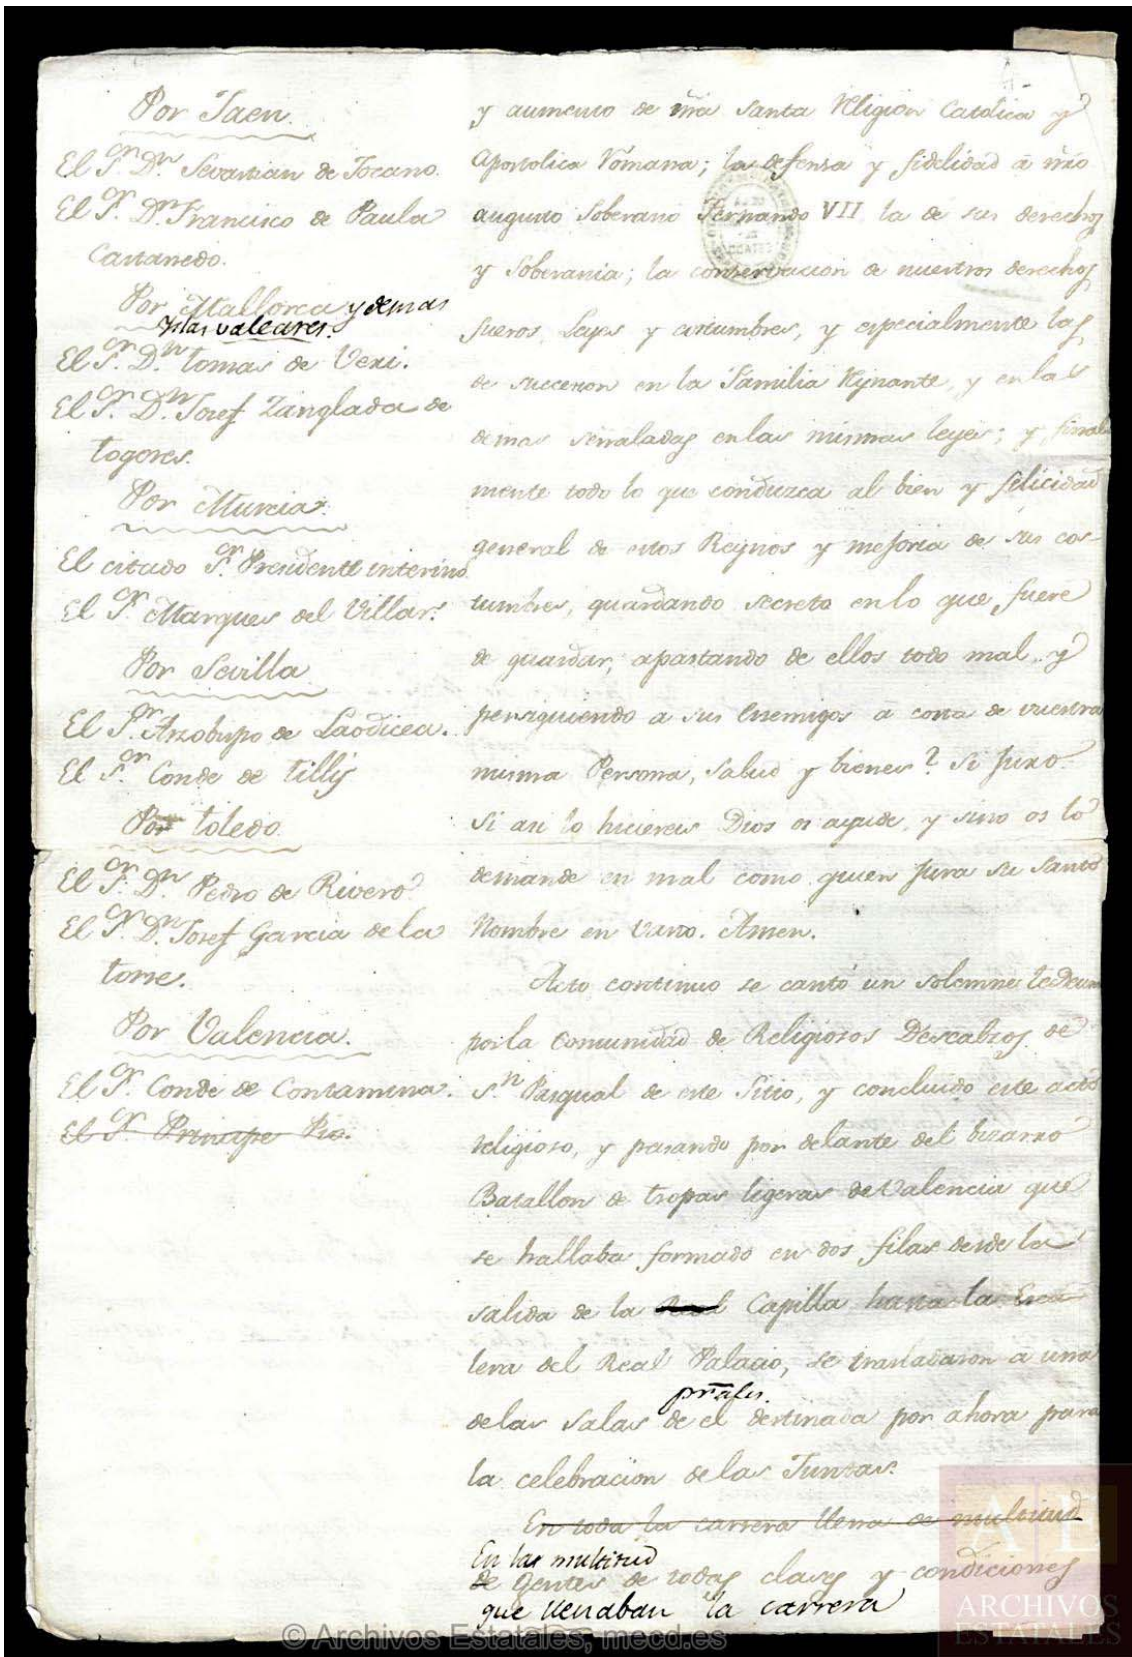 Por Jaen.
El Sr. Dn. Sevastian de Jocano.
El Sr. Dn. Francisco de Paula
Castanedo.
Por Mallorca y demas
Yslas valeares.
El Sr. Dn. tomas de Veri.
El Sr. Dn. Josef Zanglada de
togores.
Por Murcia.
El citado Sr. Presidente interino
El Sr. Marques del Villar.
Por Sevilla
El Sr. Arzobispo de Laodicea.
El Sr. Conde de tilly
Por toledo
El Sr. Dn. Pedro de Rivero
El Sr. Dn. Josef Garcia de la
torre.
Por Valencia.
El Sr. Conde de Contamina.
El Sr. Principe Pio.
y aumento de nra santa Religion Catolica y
Apostolica Romana; la defensa y fidelidad á nro
augusto Soberano Fernando VII la de sus derechos
y Soberania; la conservacion de nuestros derechos,
fueros, Leyes y costumbres, y especialmente las
de succesion en la Familia Reynante, y en las
demas señaladas en las mismas leyes; y final
mente todo lo que conduzca al bien y felicidad
general de estos Reynos y mejoria de sus cos-
tumbres, guardando secreto en lo que fuere
de guardar, apartando de ellos todo mal y
persiguiendo a sus Enemigos a costa de vuestra
misma Persona, salud y bienes? Si Juro.
Si asi lo hiciereis Dios os ayude, y sino os lo
demande en mal como quien Jura su santo
Nombre en Vano. Amen.
Acto continuo se cantó un solemne teDeum
por la Comunidad de Religiosos Descalzos de
Sn. Pasqual de este Sitio, y concluido este acto
religioso, y pasando por delante del bizarro
Batallon de tropas ligeras de Valencia que
se hallaba formado en dos filas desde la
salida de la Real Capilla hasta la Esca
lera del Real Palacio, se trasladaron á una
prales.
de las salas de el destinada por ahora para
la celebracion de las Juntas.
En toda la carrera llena de multitud
En las multitud
de gentes de todas clases y condiciones
que llenaban la carrera
© Archivos Estatales, mecd.es
AE
ARCHIVOS
ESTATALES